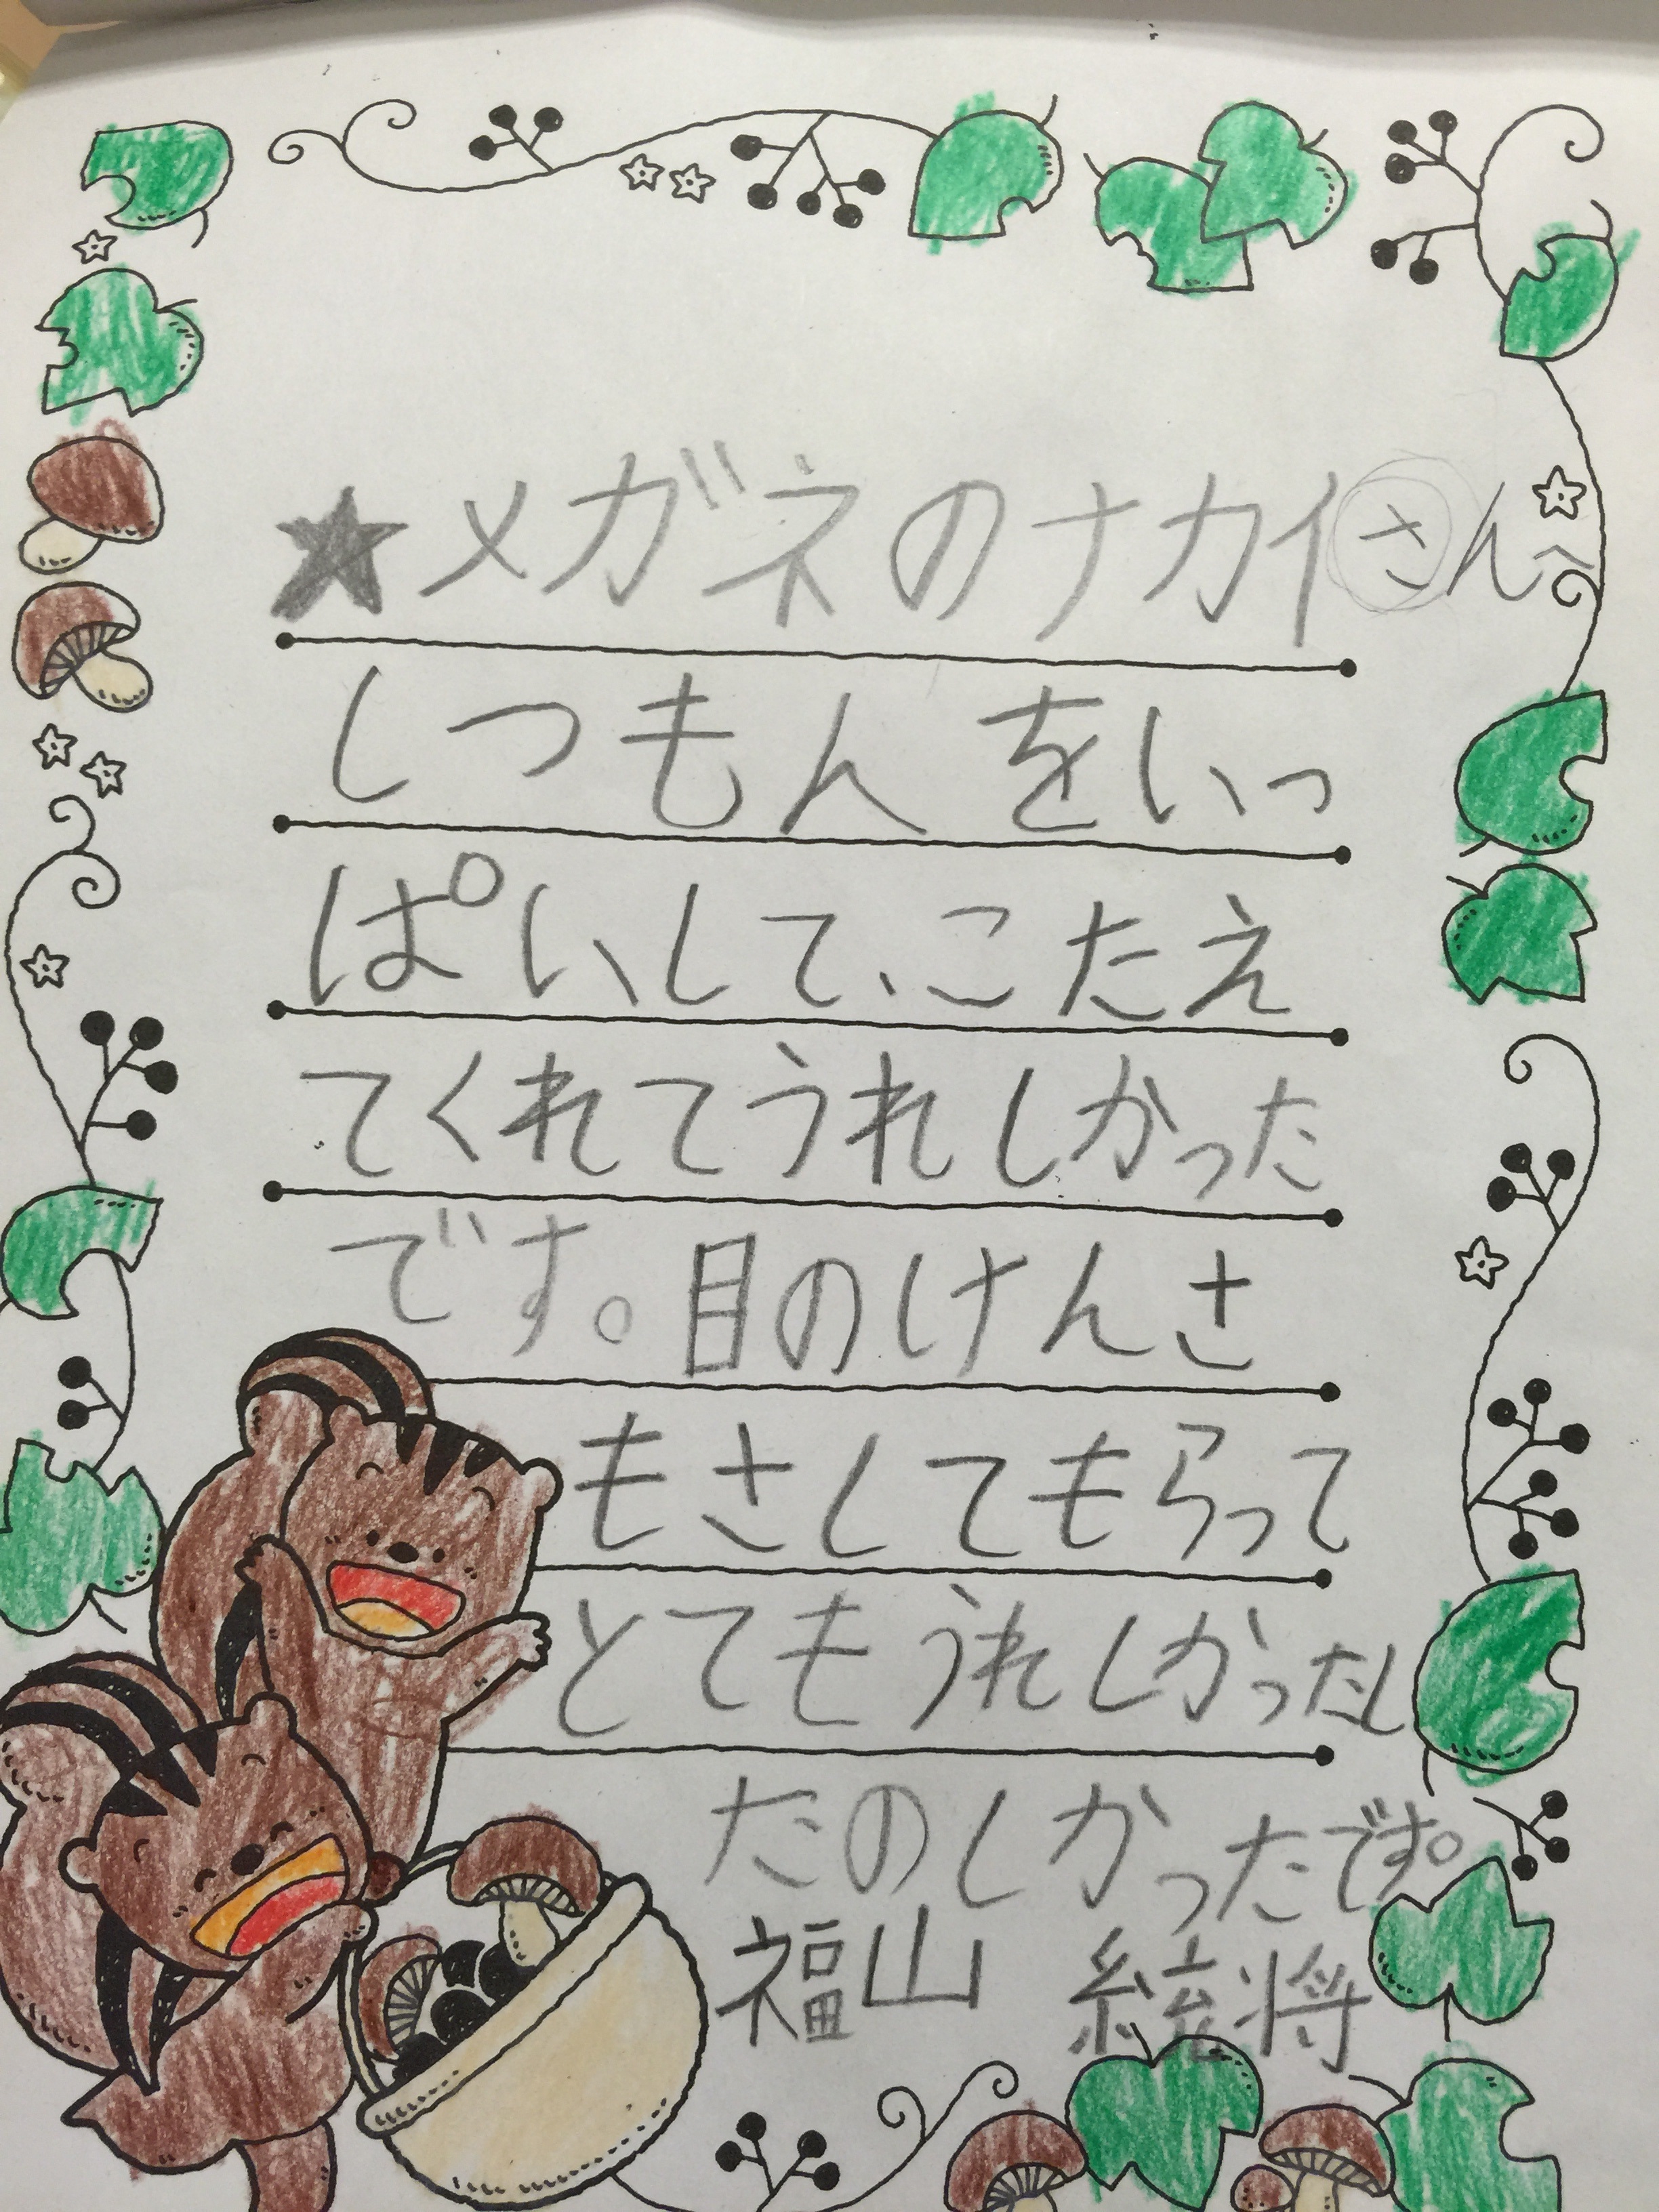 ★メガネのナカイさんへ
しつもんをいっ
ぱいして、こたえ
てくれてうれしかった
です。目のけんさ
もさしてもらって
とてもうれしかったし
たのしかったです。
福山 統将